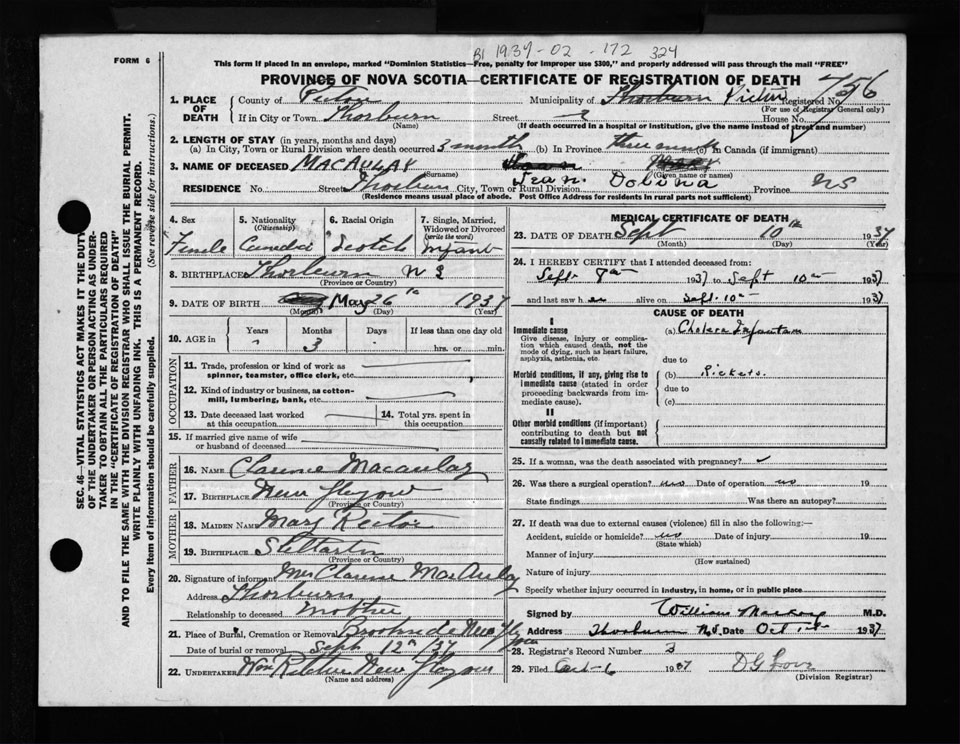 B1 1937-02-172 324
FORM 6
This form if placed in an envelope, marked "Dominion Statistics—Free, penalty for improper use $300," and properly addressed will pass through the mail "FREE"
PROVINCE OF NOVA SCOTIA—CERTIFICATE OF REGISTRATION OF DEATH
1. PLACE OF DEATH County of Pictou Municipality of Thorburn Pictou Registered No. 756
(For use of Registrar General only)
If in City or Town Thorburn Street House No.
(Name) (If death occurred in a hospital or institution, give the name instead of street and number)
2. LENGTH OF STAY (in years, months and days)
(a) In City, Town or Rural Division where death occurred 3 months (b) In Province three months (c) In Canada (if immigrant)
3. NAME OF DECEASED MACAULAY Jean Dolina
(Surname) (Given name or names)
RESIDENCE No. Street Thorburn City, Town or Rural Division Province NS
(Residence means usual place of abode. Post Office Address for residents in rural parts not sufficient)
4. Sex Female
5. Nationality (Citizenship) Canada
6. Racial Origin Scotch
7. Single, Married, Widowed or Divorced (write the word) Infant
8. BIRTHPLACE Thorburn N S
(Province or Country)
9. DATE OF BIRTH May 26 th 1937
(Month) (Day) (Year)
10. AGE in Years " Months 3 Days If less than one day old hrs. or min.
OCCUPATION
11. Trade, profession or kind of work as spinner, teamster, office clerk, etc.
12. Kind of industry or business, as cotton-mill, lumbering, bank, etc.
13. Date deceased last worked at this occupation
14. Total yrs. spent in this occupation
15. If married give name of wife or husband of deceased
FATHER
16. NAME Clarence Macaulay
17. BIRTHPLACE New Glasgow
(Province or Country)
MOTHER
18. MAIDEN NAME Mary Rector
19. BIRTHPLACE Stellarton
(Province or Country)
20. Signature of informant Mrs Clarence MacAulay
Address Thorburn
Relationship to deceased mother
21. Place of Burial, Cremation or Removal New Glasgow
Date of burial or removal Sept 12th 37
22. UNDERTAKER New Glasgow
(Name and address)
MEDICAL CERTIFICATE OF DEATH
23. DATE OF DEATH Sept 10th 1937
(Month) (Day) (Year)
24. I HEREBY CERTIFY that I attended deceased from:
Sept 8th 1937 to Sept 10th 1937
and last saw her alive on Sept. 10th 1937
CAUSE OF DEATH
I
Immediate cause
Give disease, injury or complication which caused death, not the mode of dying, such as heart failure, asphyxia, asthenia, etc.
(a) Cholera Infantum
due to
Morbid conditions, if any, giving rise to immediate cause (stated in order proceeding backwards from immediate cause).
(b) Rickets.
due to
(c)
II
Other morbid conditions (if important) contributing to death but not causally related to immediate cause.
25. If a woman, was the death associated with pregnancy?
26. Was there a surgical operation? no Date of operation no 19
State findings Was there an autopsy?
27. If death was due to external causes (violence) fill in also the following:—
Accident, suicide or homicide? no Date of injury 19
(State which)
Manner of injury
(How sustained)
Nature of injury
Specify whether injury occurred in industry, in home, or in public place
Signed by William M.D.
Address Thorburn N.S. Date Oct 1st 1937
28. Registrar's Record Number 3
29. Filed Oct-6 1937 D G Love
(Division Registrar)
SEC. 46—VITAL STATISTICS ACT MAKES IT THE DUTY
OF THE UNDERTAKER OR PERSON ACTING AS UNDER-
TAKER TO OBTAIN ALL THE PARTICULARS REQUIRED
IN THE "CERTIFICATE OF REGISTRATION OF DEATH"
AND TO FILE THE SAME WITH THE DIVISION REGISTRAR WHO SHALL ISSUE THE BURIAL PERMIT.
WRITE PLAINLY WITH UNFADING INK. THIS IS A PERMANENT RECORD.
Every item of information should be carefully supplied. (See reverse side for instructions.)